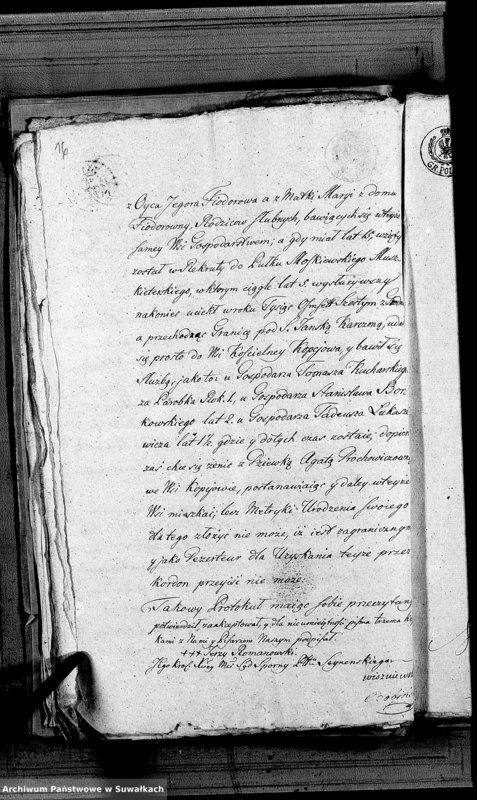 16
GR. PO
z Oyca Jegora Fiodorowa a z Matki Maryi z domu
Fiodorowny, Rodzicow Slubnych, bawiących się wteyże
samey Wsi Gospodarstwem; a gdy miał lat 15, wzięty
został w Rekruty do Pułku Moskiewskiego Musz-
kieterskiego, wktorym ciągle lat 5. wysłużywszy
nakoniec uciekł wroku Tysiąc Osmset Szostym z
a przechodząc Granicę pod S. Jańską Karczmą, uda
się prosto do Wsi Kościelney Kopcjowa, y bawił się
Służbą, jako to: u Gospodarza Tomasza Kucharskiego
za Parobka Rok 1, u Gospodarza Stanisława Bor-
kowskiego lat 2. u Gospodarza Tadeusza Lukasz
wicza lat 1½. gdzie y dotych czas zostaie; dopiero
zaś chce się żenic z Dziewką Agatą Prochowiczową
we Wsi Kopcjowie, postanawiaiąc y daley wteyże
Wsi mieszkać; lecz Metryki Urodzenia swoiego
dla tego złożyć nie może, iż iest zagranicznym
y jako Dezerteur dla Uzyskania teyże przez
kordon przeyść nie może.
Takowy Protokuł maiąc sobie przeczytany
potwierdził zaakceptował, y dla nie umieiętności pisma trzema
kami z Nami y Pisarzem Naszym podpisał
+++ Jerzy Romanowski.
Sporny Seynenskiego
Archiwum Państwowe w Suwałkach